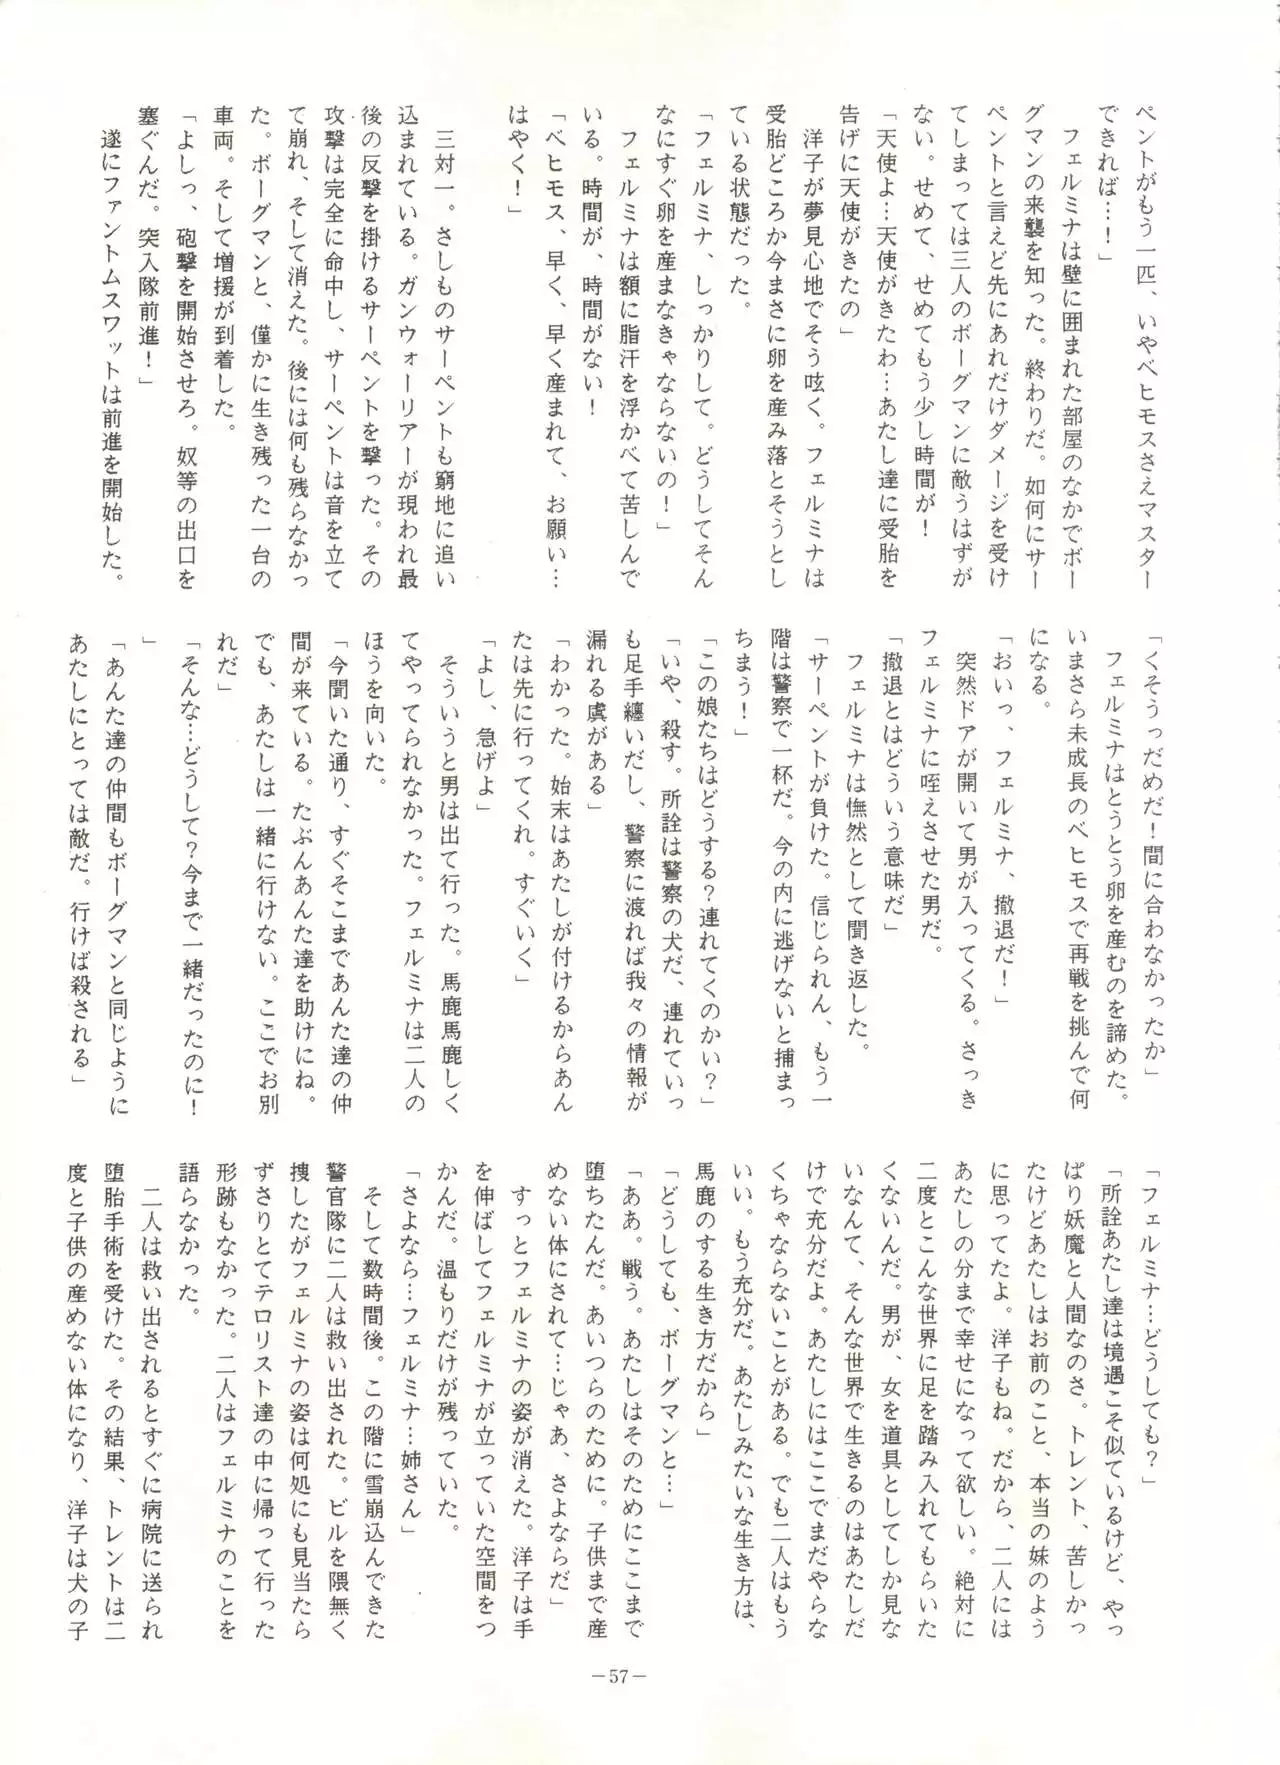 ペントがもう一匹、いやベヒモスさえマスター
できれば…！」
　フェルミナは壁に囲まれた部屋のなかでボー
グマンの来襲を知った。終わりだ。如何にサー
ペントと言えど先にあれだけダメージを受け
てしまっては三人のボーグマンに敵うはずが
ない。せめて、せめてもう少し時間が！
「天使よ…天使がきたわ…あたし達に受胎を
告げに天使がきたの」
　洋子が夢見心地でそう呟く。フェルミナは
受胎どころか今まさに卵を産み落とそうとし
ている状態だった。
「フェルミナ、しっかりして。どうしてそん
なにすぐ卵を産まなきゃならないの！」
　フェルミナは額に脂汗を浮かべて苦しんで
いる。時間が、時間がない！
「ベヒモス、早く、早く産まれて、お願い…
はやく！」

　三対一。さしものサーペントも窮地に追い
込まれている。ガンウォーリアーが現われ最
後の反撃を掛けるサーペントを撃った。その
攻撃は完全に命中し、サーペントは音を立て
て崩れ、そして消えた。後には何も残らなかっ
た。ボーグマンと、僅かに生き残った一台の
車両。そして増援が到着した。
「よしっ、砲撃を開始させろ。奴等の出口を
塞ぐんだ。突入隊前進！」
　遂にファントムスワットは前進を開始した。
「くそうっだめだ！間に合わなかったか」
　フェルミナはとうとう卵を産むのを諦めた。
いまさら未成長のベヒモスで再戦を挑んで何
になる。
「おいっ、フェルミナ、撤退だ！」
　突然ドアが開いて男が入ってくる。さっき
フェルミナに咥えさせた男だ。
「撤退とはどういう意味だ」
　フェルミナは憮然として聞き返した。
「サーペントが負けた。信じられん、もう一
階は警察で一杯だ。今の内に逃げないと捕まっ
ちまう！」
「この娘たちはどうする？連れてくのかい？」
「いや、殺す。所詮は警察の犬だ、連れていっ
も足手纏いだし、警察に渡れば我々の情報が
漏れる虞がある」
「わかった。始末はあたしが付けるからあん
たは先に行ってくれ。すぐいく」
「よし、急げよ」
　そういうと男は出て行った。馬鹿馬鹿しく
てやってられなかった。フェルミナは二人の
ほうを向いた。
「今聞いた通り、すぐそこまであんた達の仲
間が来ている。たぶんあんた達を助けにね。
でも、あたしは一緒に行けない。ここでお別
れだ」
「そんな…どうして？今まで一緒だったのに！
」
「あんた達の仲間もボーグマンと同じように
あたしにとっては敵だ。行けば殺される」
「フェルミナ…どうしても？」
「所詮あたし達は境遇こそ似ているけど、やっ
ぱり妖魔と人間なのさ。トレント、苦しかっ
たけどあたしはお前のこと、本当の妹のよう
に思ってたよ。洋子もね。だから、二人には
あたしの分まで幸せになって欲しい。絶対に
二度とこんな世界に足を踏み入れてもらいた
くないんだ。男が、女を道具としてしか見な
いなんて、そんな世界で生きるのはあたしだ
けで充分だよ。あたしにはここでまだやらな
くちゃならないことがある。でも二人はもう
いい。もう充分だ。あたしみたいな生き方は、
馬鹿のする生き方だから」
「どうしても、ボーグマンと…」
「ああ。戦う。あたしはそのためにここまで
堕ちたんだ。あいつらのために。子供まで産
めない体にされて…じゃあ、さよならだ」
　すっとフェルミナの姿が消えた。洋子は手
を伸ばしてフェルミナが立っていた空間をつ
かんだ。温もりだけが残っていた。
「さよなら…フェルミナ…姉さん」
　そして数時間後。この階に雪崩込んできた
警官隊に二人は救い出された。ビルを隈無く
捜したがフェルミナの姿は何処にも見当たら
ずさりとてテロリスト達の中に帰って行った
形跡もなかった。二人はフェルミナのことを
語らなかった。
　二人は救い出されるとすぐに病院に送られ
堕胎手術を受けた。その結果、トレントは二
度と子供の産めない体になり、洋子は犬の子
－57－